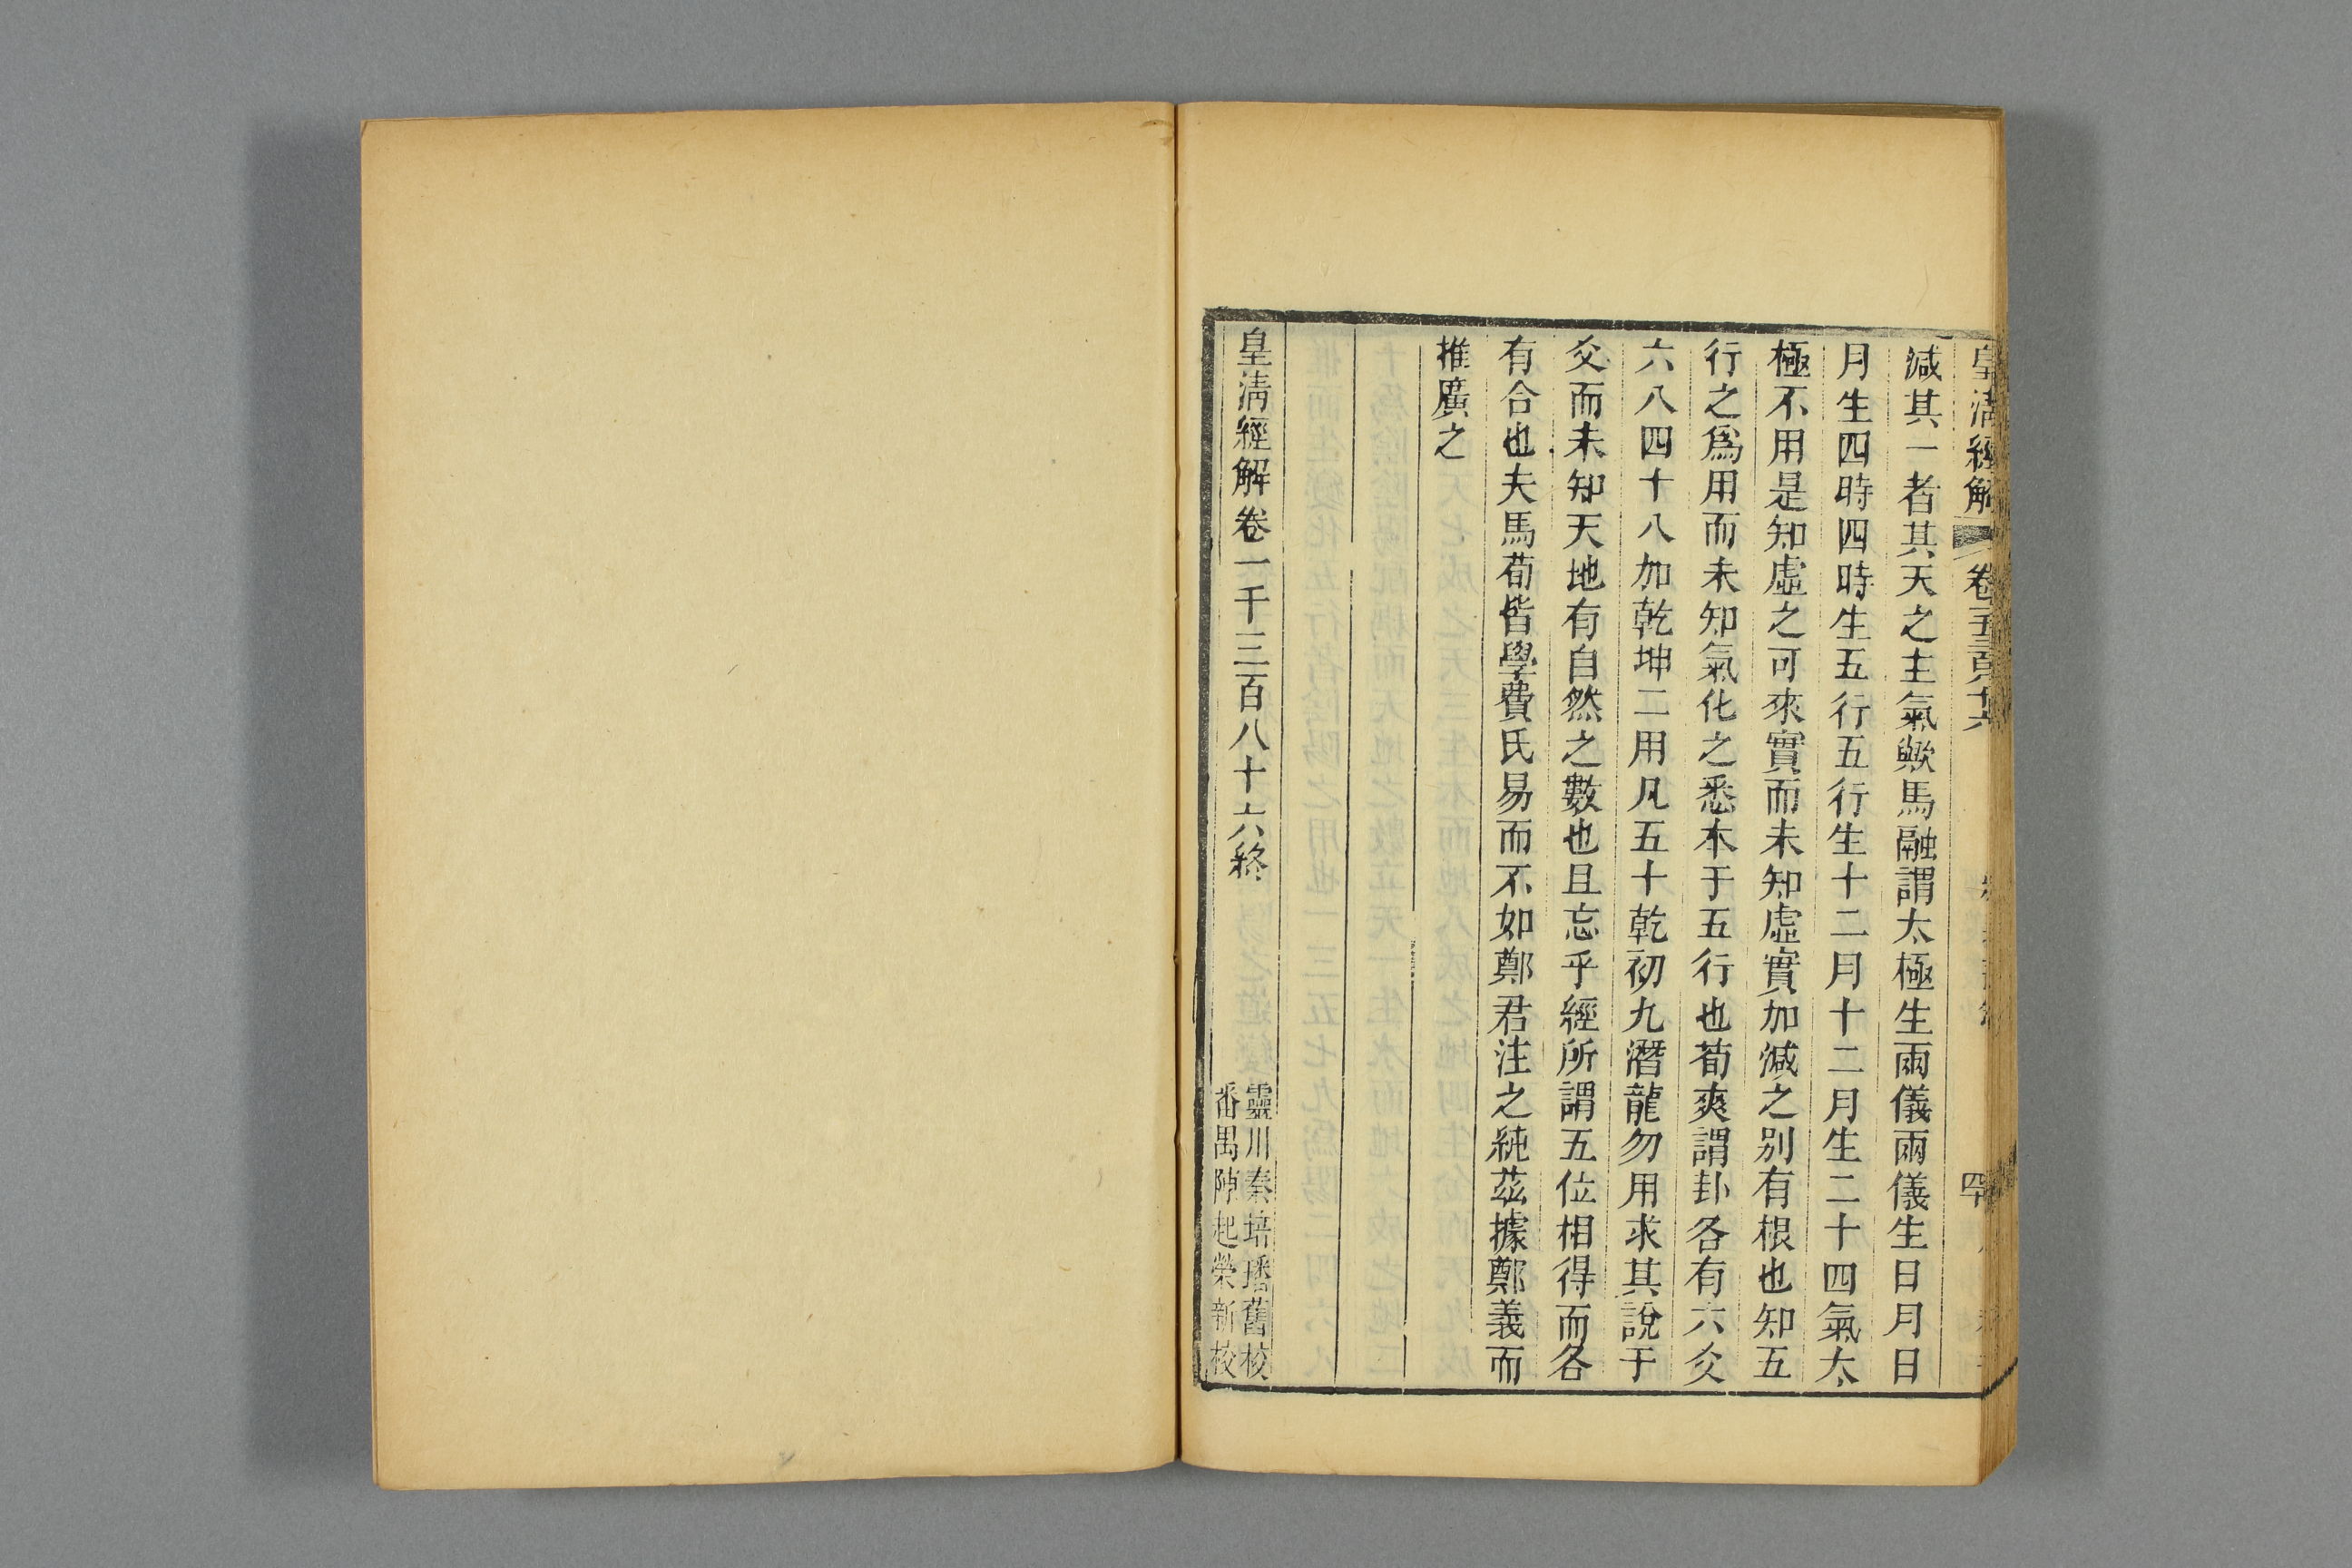 皇清經解
卷
四
減其一者其天之主氣歟馬融謂太極生兩儀兩儀生日月日
月生四時四時生五行五行生十二月十二月生二十四氣太
極不用是知虛之可來實而未知虛實加減之别有根也知五
行之爲用而未知氣化之悉本于五行也荀爽謂卦各有六爻
六八四十八加乾坤二用凡五十乾初九潛龍勿用求其說于
爻而未知天地有自然之數也且忘乎經所謂五位相得而各
有合也夫馬荀皆學費氏易而不如鄭君注之純茲據鄭義而
推廣之
皇清經解卷一千三百八十六終
靈川秦培璠舊校
番禺陳起榮新校